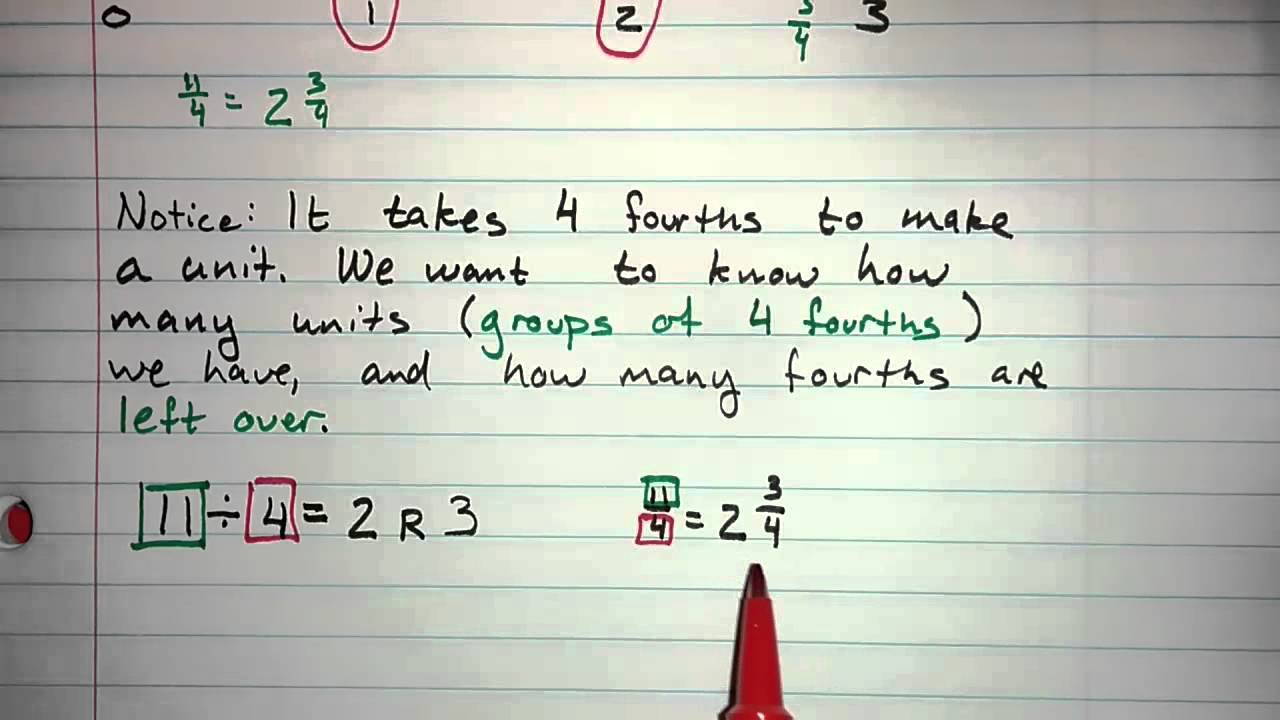 0 1 2 3/4 3
11/4 = 2 3/4
Notice: It takes 4 fourths to make
a unit. We want to know how
many units (groups of 4 fourths)
we have, and how many fourths are
left over.
11 ÷ 4 = 2 R 3 11/4 = 2 3/4